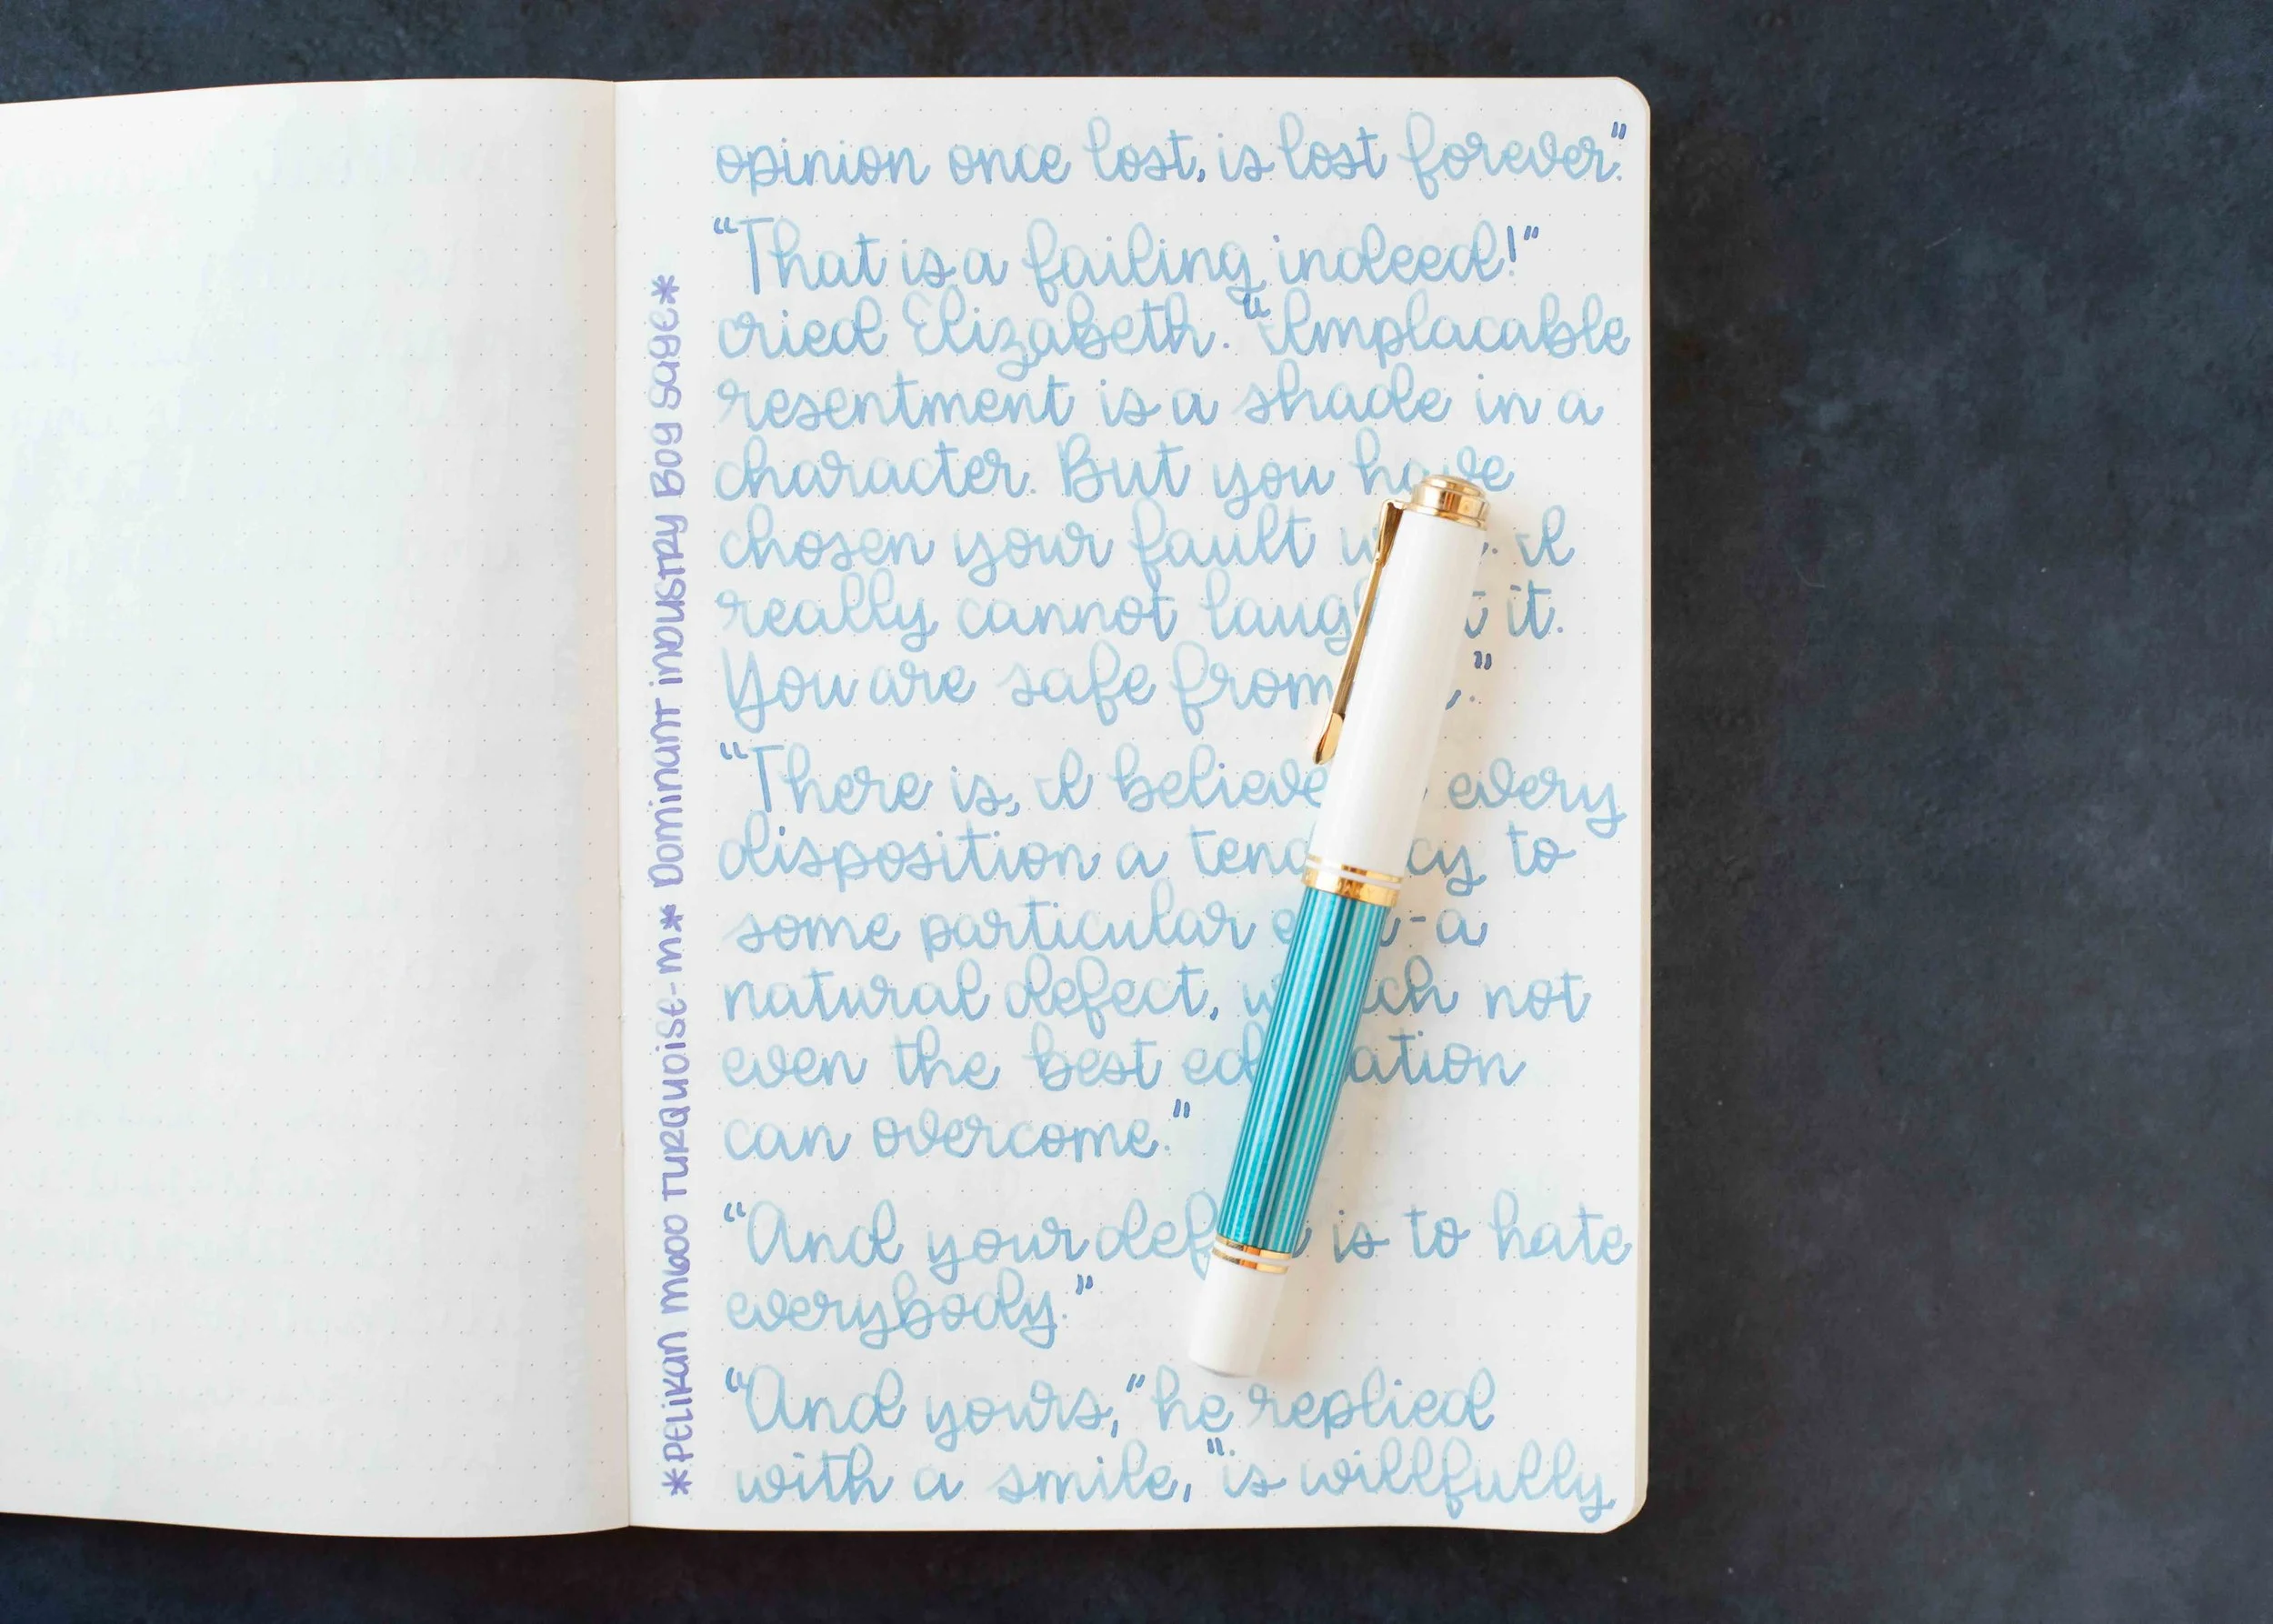 opinion once lost, is lost forever."
"That is a failing indeed!"
cried Elizabeth. "Implacable
resentment is a shade in a
character. But you have
chosen your fault I
really cannot it.
You are safe from
"There is, I believe every
disposition a to
some particular -a
natural defect, not
even the best
can overcome."
"And your is to hate
everybody."
"And yours," he replied
with a smile, "is willfully
*Pelikan M600 Turquoise-M* Dominant Industry Bog Sage*